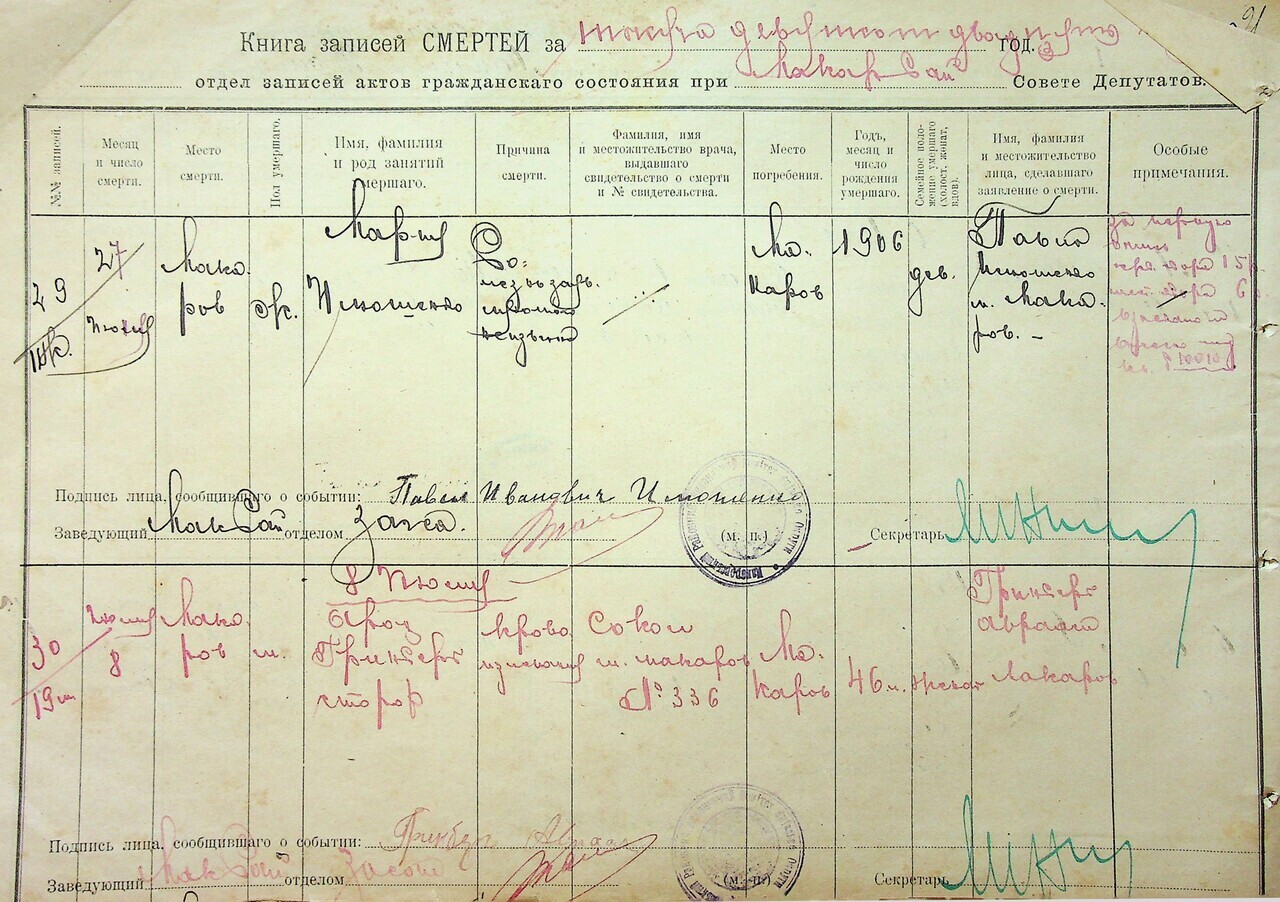 21
Книга записей СМЕРТЕЙ за тысяча девятсот двадцять год.
отдел записей актов гражданскаго состояния при Макар Рай Совете Депутатов.
№№ записей.
Месяц и число смерти.
Место смерти.
Пол умершаго.
Имя, фамилия и род занятий умершаго.
Причина смерти.
Фамилия, имя и местожительство врача, выдавшаго свидетельство о смерти и № свидетельства.
Место погребения.
Годъ, месяц и число рождения умершаго.
Семейное положение умершаго (холост, женат, вдов).
Имя, фамилия и местожительство лица, сделавшаго заявление о смерти.
Особые примечания.
29
27
Июня
Мака
ров
ж.
Мария
Имошенко
Ма.
каров
1906
дев.
Павел
Имошенко
м. Мака
ров. –
за первую
15 р.
6 р.
10010
Подпись лица, сообщившаго о событии: Павел Иванович Имошенко
Заведующий Мак Рай отделом Загса.
(м. п.)
Секретарь
8 Июля
30
19
Июля
8
Мака
ров
м.
Арон
Гринберг
столяр
крово
излияние
Сокол
м. Макаров
№ 336
Ма.
каров
46 л.
женат
Гринберг
Авраам
Макаров
Подпись лица, сообщившаго о событии: Гринберг Авраам
Заведующий Мак Рай отделом Загсом
(м. п.)
Секретарь